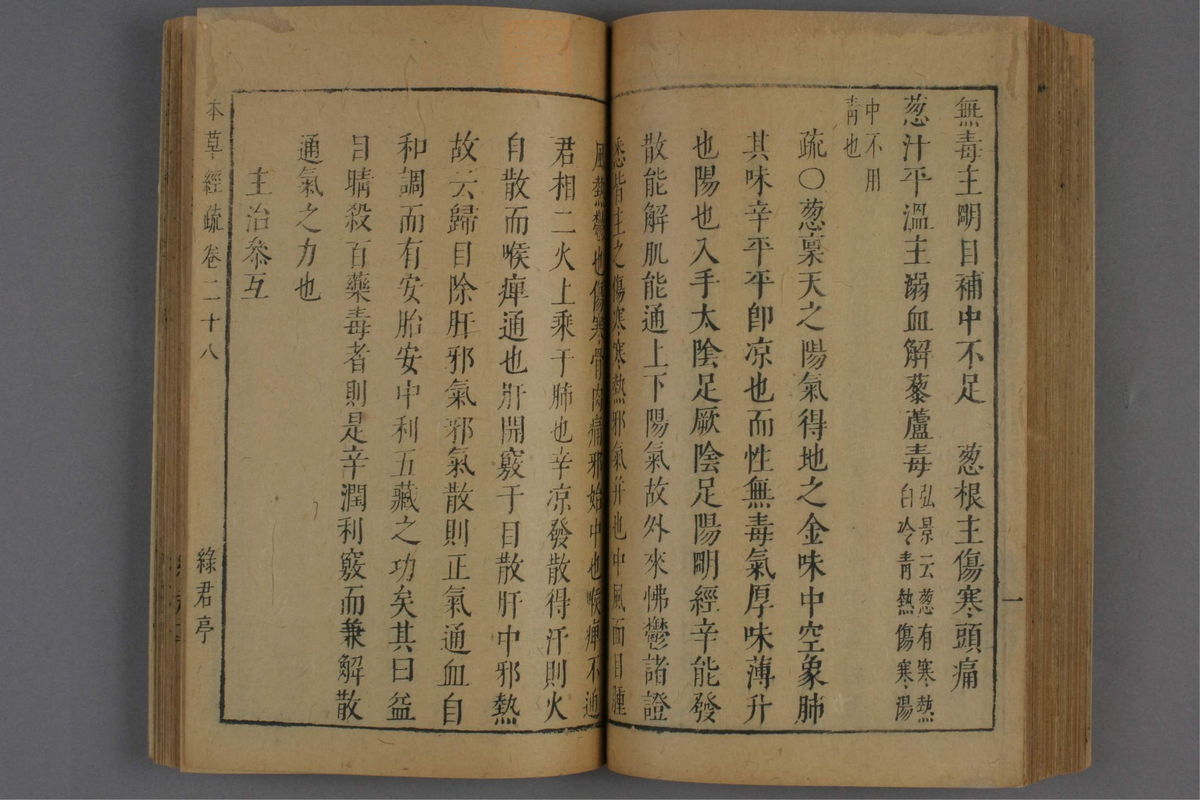 無毒主明目補中不足　葱根主傷寒頭痛
葱汁平溫主溺血解藜蘆毒
弘景云葱有寒熱
白冷青熱傷寒湯
中不用
青也
疏○葱稟天之陽氣得地之金味中空象肺
其味辛平平卽凉也而性無毒氣厚味薄升
也陽也入手太陰足厥陰足陽明經辛能發
散能解肌能通上下陽氣故外來怫鬱諸證
悉皆主之傷寒寒熱邪氣并也中風面目腫
風熱鬱也傷寒骨肉痛邪始中也喉痺不通
君相二火上乘于肺也辛凉發散得汗則火
自散而喉痺通也肝開竅于目散肝中邪熱
故云歸目除肝邪氣邪氣散則正氣通血自
和調而有安胎安中利五藏之功矣其曰益
目睛殺百藥毒者則是辛潤利竅而兼解散
通氣之力也
主治叅互
本草經疏 卷二十八
綠君亭
一